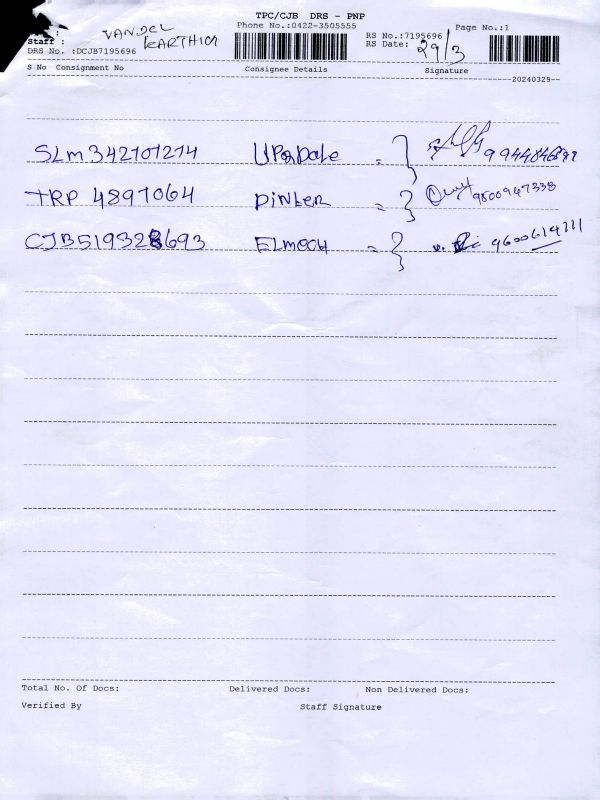 TPC/CJB DRS - PNP
Phone No.:0422-3505555
Page No.:1
VANDEL
Staff : KARTHICK
RS No.:7195696
RS Date: 29/3
DRS No. :DCJB7195696
S No Consignment No Consignee Details Signature
20240329
SLM342101214 =
TRP 4897064 =
CJB519328693 ELMECH = 9600614111
Total No. Of Docs: Delivered Docs: Non Delivered Docs:
Verified By Staff Signature